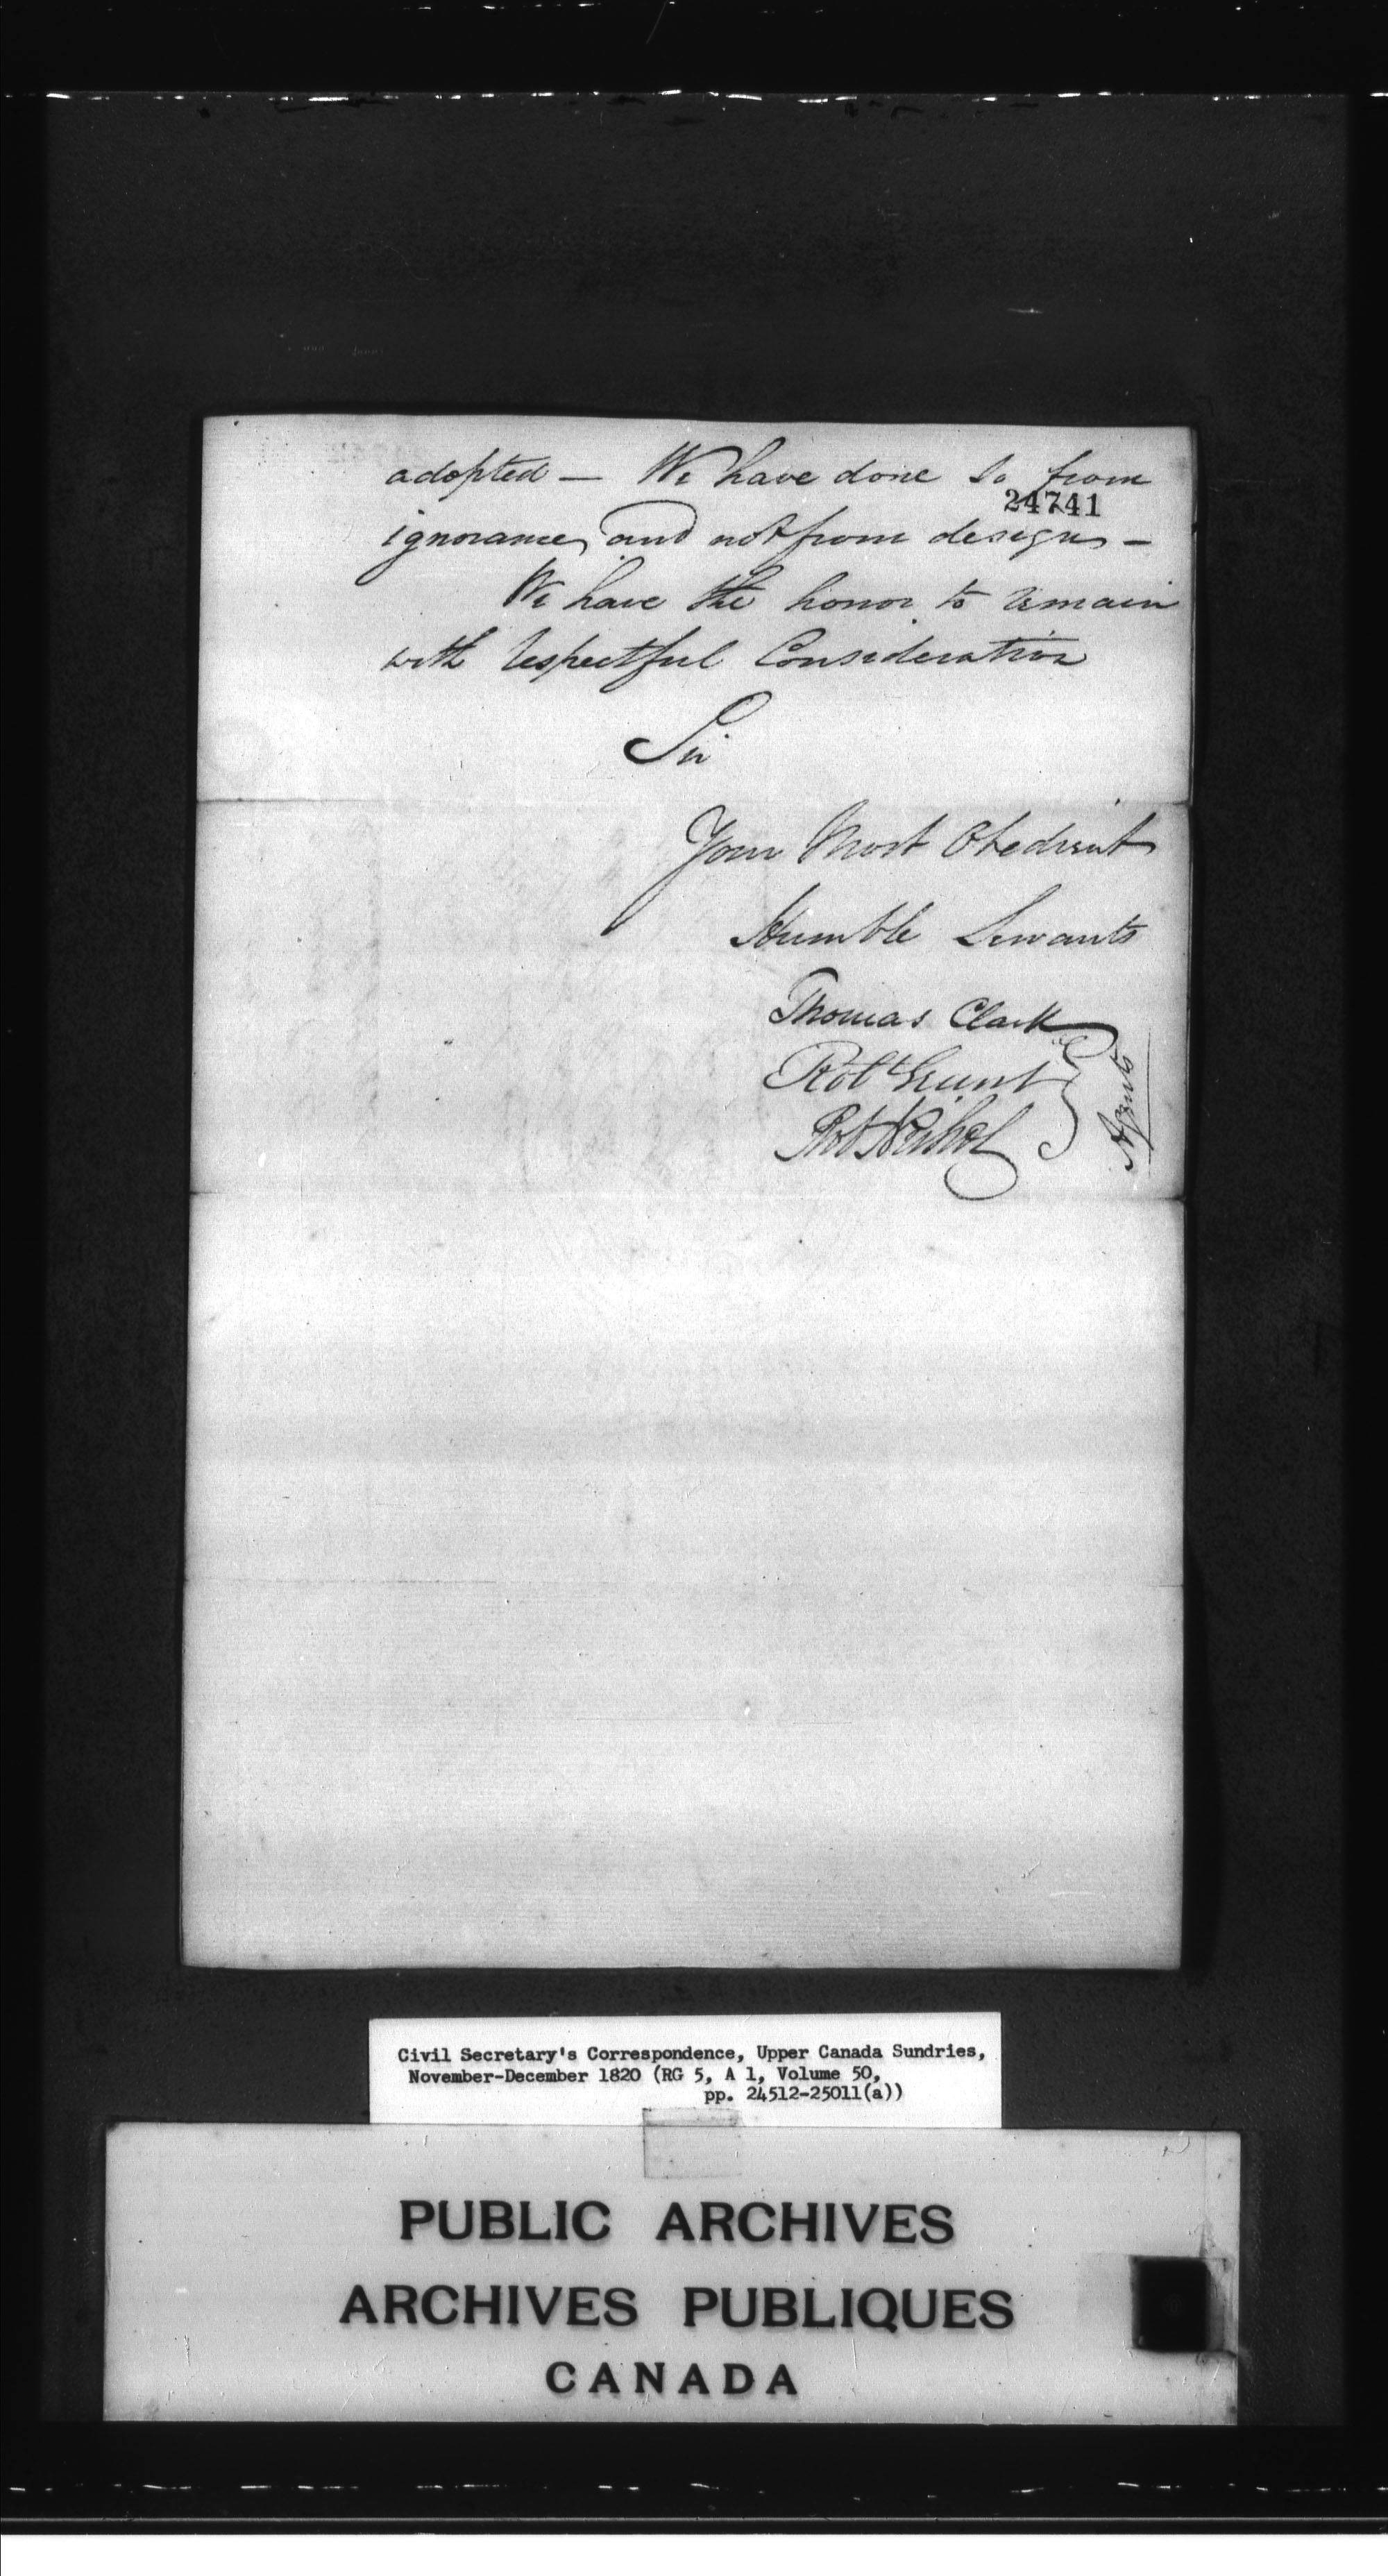 adopted — We have done so from
24741
ignorance, and not from design —
We have the honor to remain
with respectful Consideration
Sir
Your Most Obedient
Humble Servants
Thomas Clark
Robt Grant
Robt Nichol
Agents
Civil Secretary's Correspondence, Upper Canada Sundries,
November-December 1820 (RG 5, A 1, Volume 50,
pp. 24512-25011(a))
PUBLIC ARCHIVES
ARCHIVES PUBLIQUES
CANADA